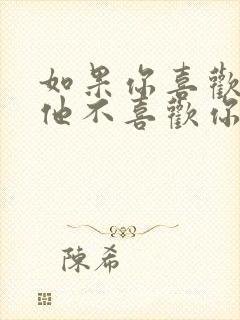 如果你喜歡
他不喜歡你
陳希